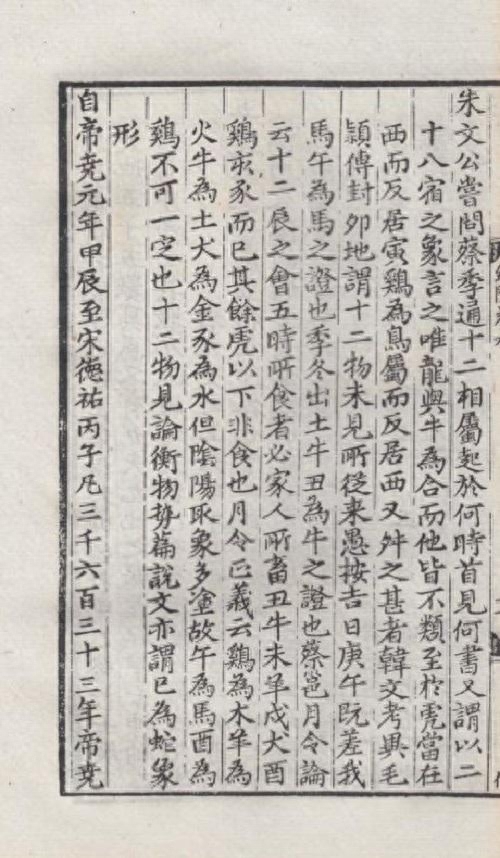 朱文公嘗問蔡季通十二相屬起於何時首見何書又謂以二
十八宿之象言之唯龍與牛為合而他皆不類至於虎當在
西而反居寅鷄為鳥屬而反居西又舛之甚者韓文考異毛
頴傳封卯地謂十二物未見所從来愚按吉日庚午既差我
馬午為馬之證也季冬出土牛丑為牛之證也蔡邕月令論
云十二辰之會五時所食者必家人所畜丑牛未羊戌犬酉
鷄亥豕而已其餘虎以下非食也月令正義云鷄為木羊為
火牛為土犬為金豕為水但陰陽取象多塗故午為馬酉為
鷄不可一定也十二物見論衡物勢篇說文亦謂巳為蛇象
形
自帝尭元年甲辰至宋德祐丙子凡三千六百三十三年帝尭